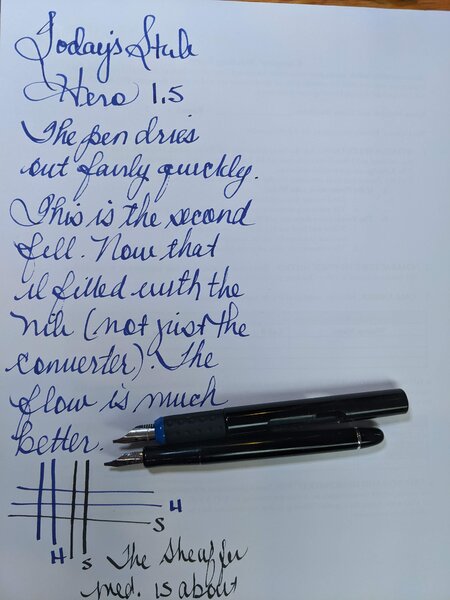 Today's Stub
Hero 1.5
The pen dries
out fairly quickly.
This is the second
fill. Now that
I filled with the
nib (not just the
converter). The
flow is much
better.
H
S
H S
The Sheaffer
med. is about